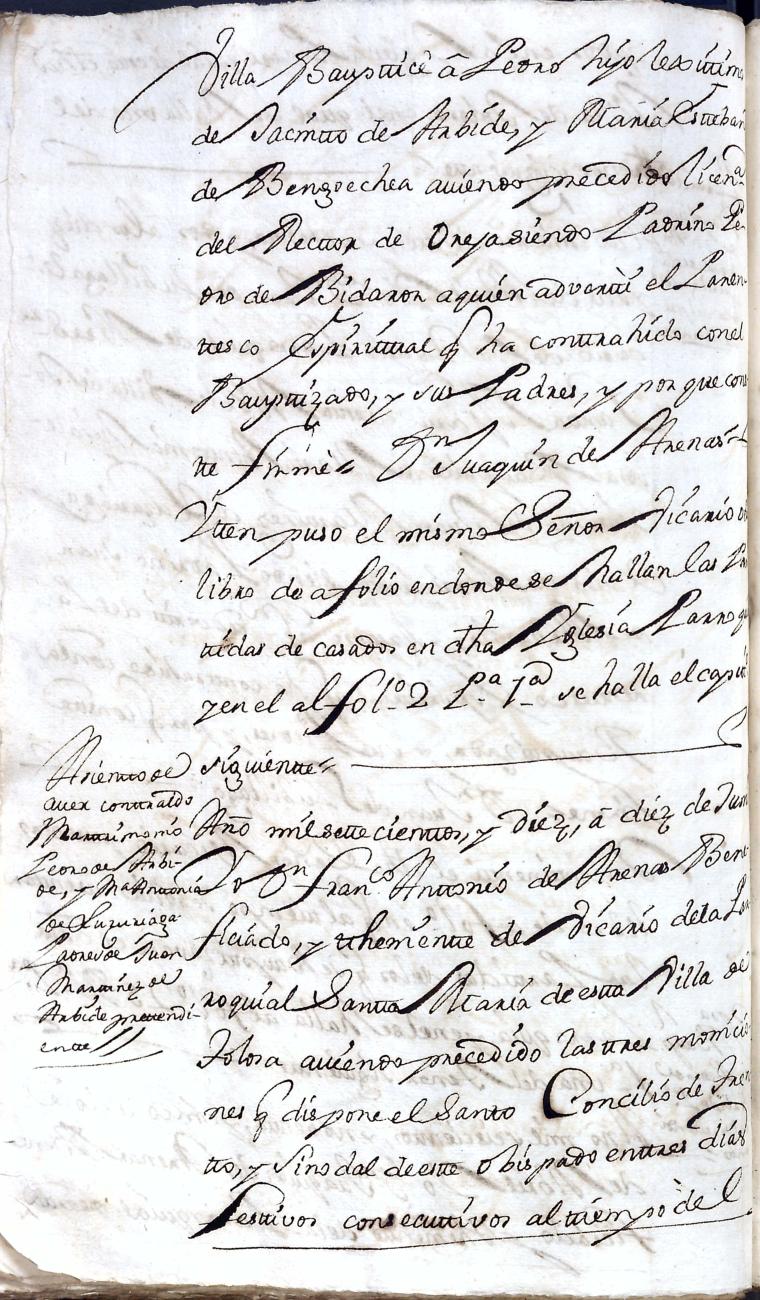 Villa Bauptticè â Pedro hijo lexittimo
de Jacintto de Arbide, y Maria Estteban
de Bengoechea auiendo precedido licenª
del Recttor de Oreja siendo Padrino Pe
dro de Bidaror a quien adverttì el Paren
ttesco Espirittual q̃ ha conttrahido con el
Bapttizado, y sus Padres, y por que cons
tte firmè Dn Juaquin de Arenas
Ytten puso el mismo Señor Vicario
libro de a folio en donde se hallan las Par
ttidas de casados en dha Yglesia Parroqu
y en el al fol.º 2 P.ª 1.ª se halla el capitt
siguientte
Asientto de
auer conttraido
Mattrimonio
Pedro de Arbi-
de, y Mª Anttonia
de Luzuriaga
Padres de Juan
Marttinez de
Arbide prettendi-
entte
Año mil sette cienttos, y Diez, â diez de Jun
Yo Dn Franco Anttonio de Arenas Bene
ficiado, y tthenientte de Vicario de la Par
roquial Santta Maria de estta Villa de
Tolosa auiendo precedido las ttres monicio
nes q̃ dispone el Santo Concilio de Tren
tto, y Sinodal de estte obispado en ttres dias
Festtivos consecuttivos al ttiempo del